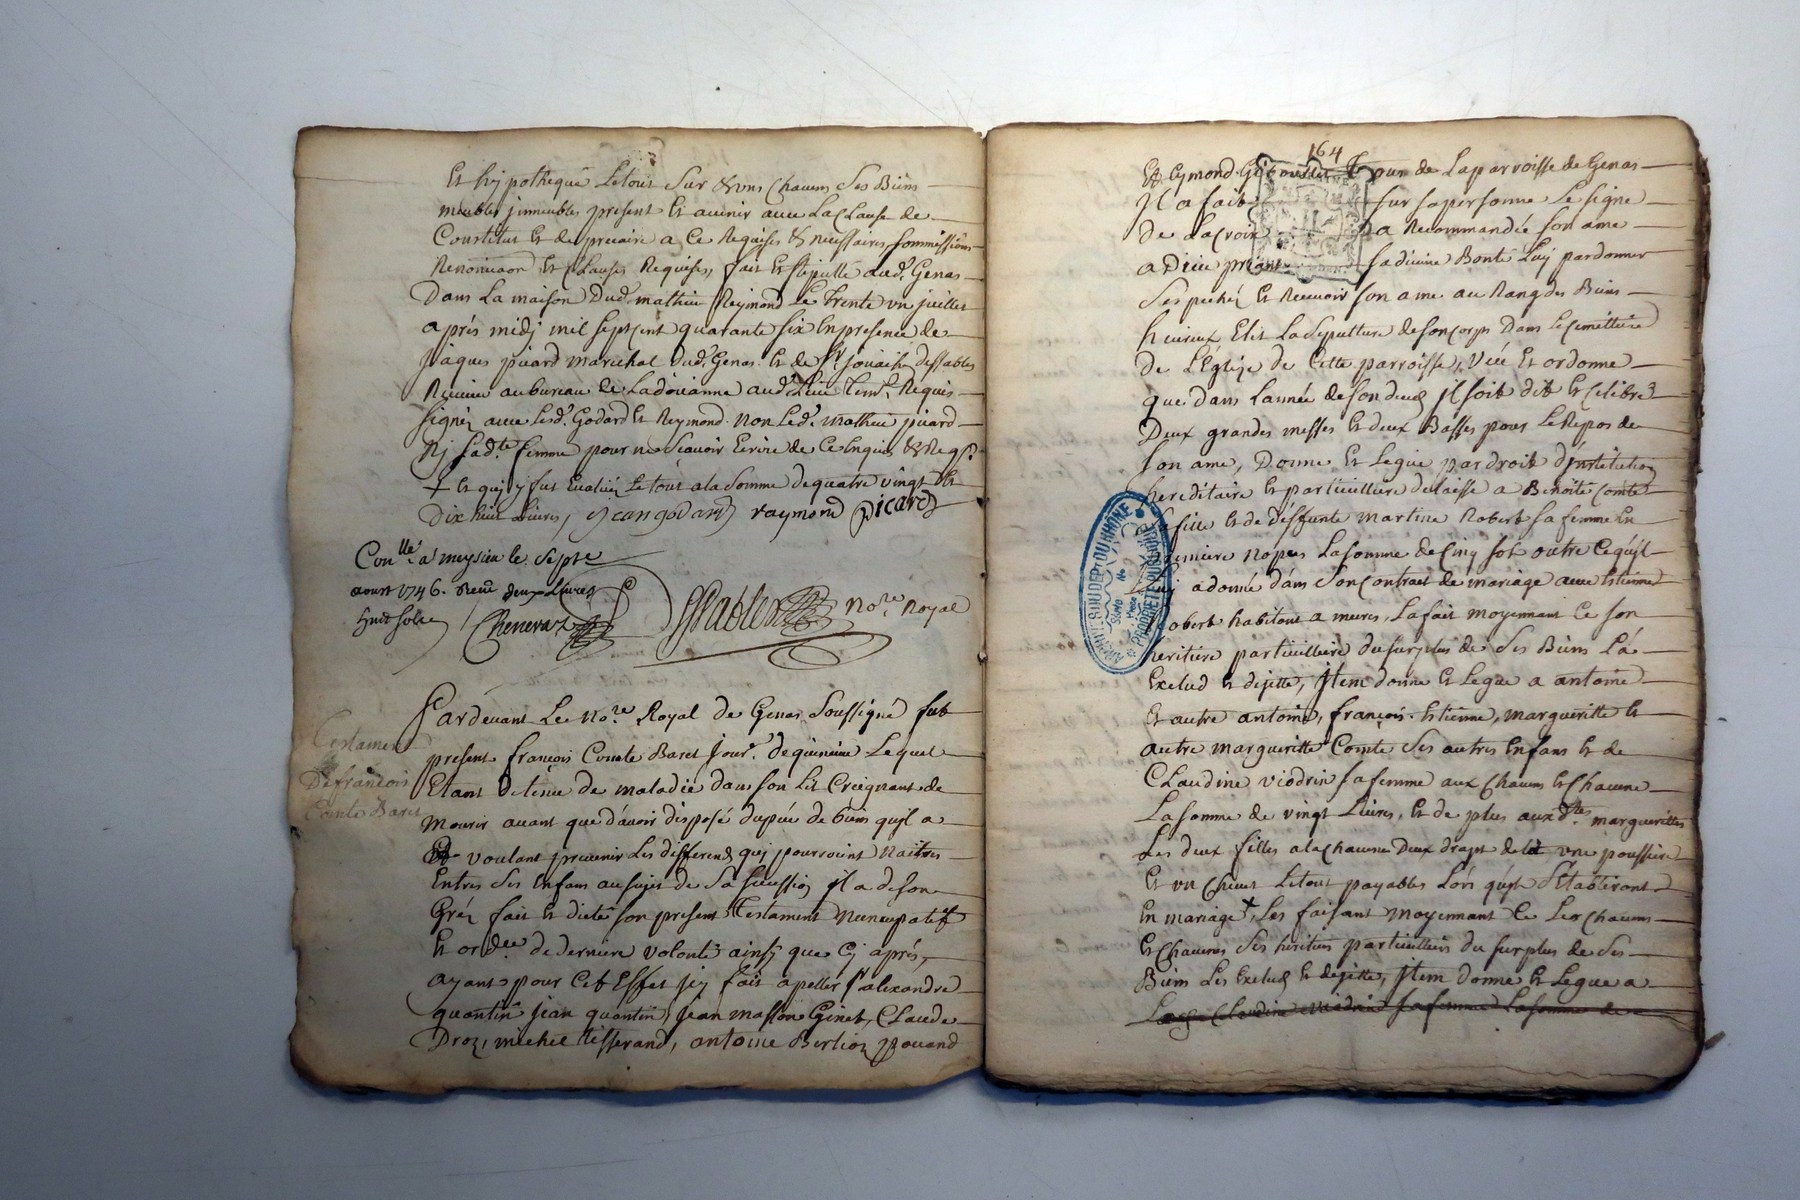 Et hypothequé Letout Sur tous Chacuns Ses Biens
meubles jmmeubles present Et avenir avec La Clause de
Constitut Et de precaire a Ce Requises & necessaires sommissions
Renonciaon Et Clauses Requises, fait Et stipullé aud. Genas
Dans La maison Dud. mathieu Reymond Le Trente vn juillet
après midj mil sept Cent quarante six En presence de
jàques picard marechal dud. Genas Et de Sr dessables
Receveur au bureau de La doüanne aud. Lieu Tem. Requis
signéz avec Led. Godard Et Reymond. Non Led. mathieu picard
Nj Sad.te femme pour ne Scavoir Ecrire de Ce Enquis & Reqs.
+ Et quj fut Evalüéz Le tout a la Somme de quatre vingt
Dix huit Livres, jean godard raymond Picard
Conllé a meysieu le Septe
aoust 1746. Receu deux Livres
huit Sols
Cheneraz Dessables No.re Royal
Testament
De françois
Comte Baret
Pardevant Le No.re Royal de Genas Soussigné fut
present françois Comte Baret Jour. de quincieu Lequel
Etant detenue de maladie dans son Lit Creignant de
Mourir avant que d'avoir disposé du peu de biens qu'jl a
Et voulant prevenir Les differends quj pourroient Naitres
Entres Ses Enfans au sujet de Sa Sucession jl a de son
Gréz fait Et dicté son present Testament Nuncupatif
Et ord.ce de derniere volonté ainsj que Cj après,
ayant pour Cet Effet jcy fait apeller Sr alexandre
quantin jean quantin, jean masson Ginet, CLaude
Droz, michel tisserand, antoine Berlioz
164
Et eymond Tous de La parroisse de Genas
Jl a fait sur sa personne Le signe
de La croix a Recommandée son ame
a Dieu priant sa divine Bonté Luy pardonner
Ses pechéz Et Recevoir son ame au Rang des Biens
heureux Elit La Sepulture de son Corps Dans Le Cimettiere
de L'Eglize de Cette parroisse, Veut Et ordonne
que dans L'année de son deces jl soit dit Et Celebré
Deux grandes messes Et deux Basses pour Le Repos de
son ame, Donne Et Legue par droit d'jnstitution
hereditaire Et particulliere delaisse a Benoite Comte
sa fille Et de deffunte Martine Robert sa femme En
premiere nopces La somme de Cinq Sols outre Ce qu'jl
Luy a donné dans Son Contrait de mariage avec Etienne
Robert habitant a meures, La fait moyennant Ce son
heritiere particulliere du surplus de Ses Biens La
Exclud Et dejette, jtem donne Et Legue a antoine
Et autre antoine, françois. Etienne, margueritte Et
autre margueritte Comte Ses autres Enfans Et de
CLaudine viodrin sa femme aux Chacuns Et Chacune
La somme de vingt Livres, Et de plus auxd.tes margueritte
Ses deux filles a La Chacune Deux draps de Lit vne poussiere
Et vn Letout payables Lors qu'jls S'Etabliront
En mariage +, Les faisant moyennant Ce Les Chacuns
Et Chacunes Ses heritiers particulliers du surplus de Ses
Biens Les Exclud Et dejette, jtem donne Et Legue a
Claudine viodrin sa femme La somme de
ARCHIVES DU DEP. DU RHÔNE
PROPRIÉTÉ PUBLIQUE